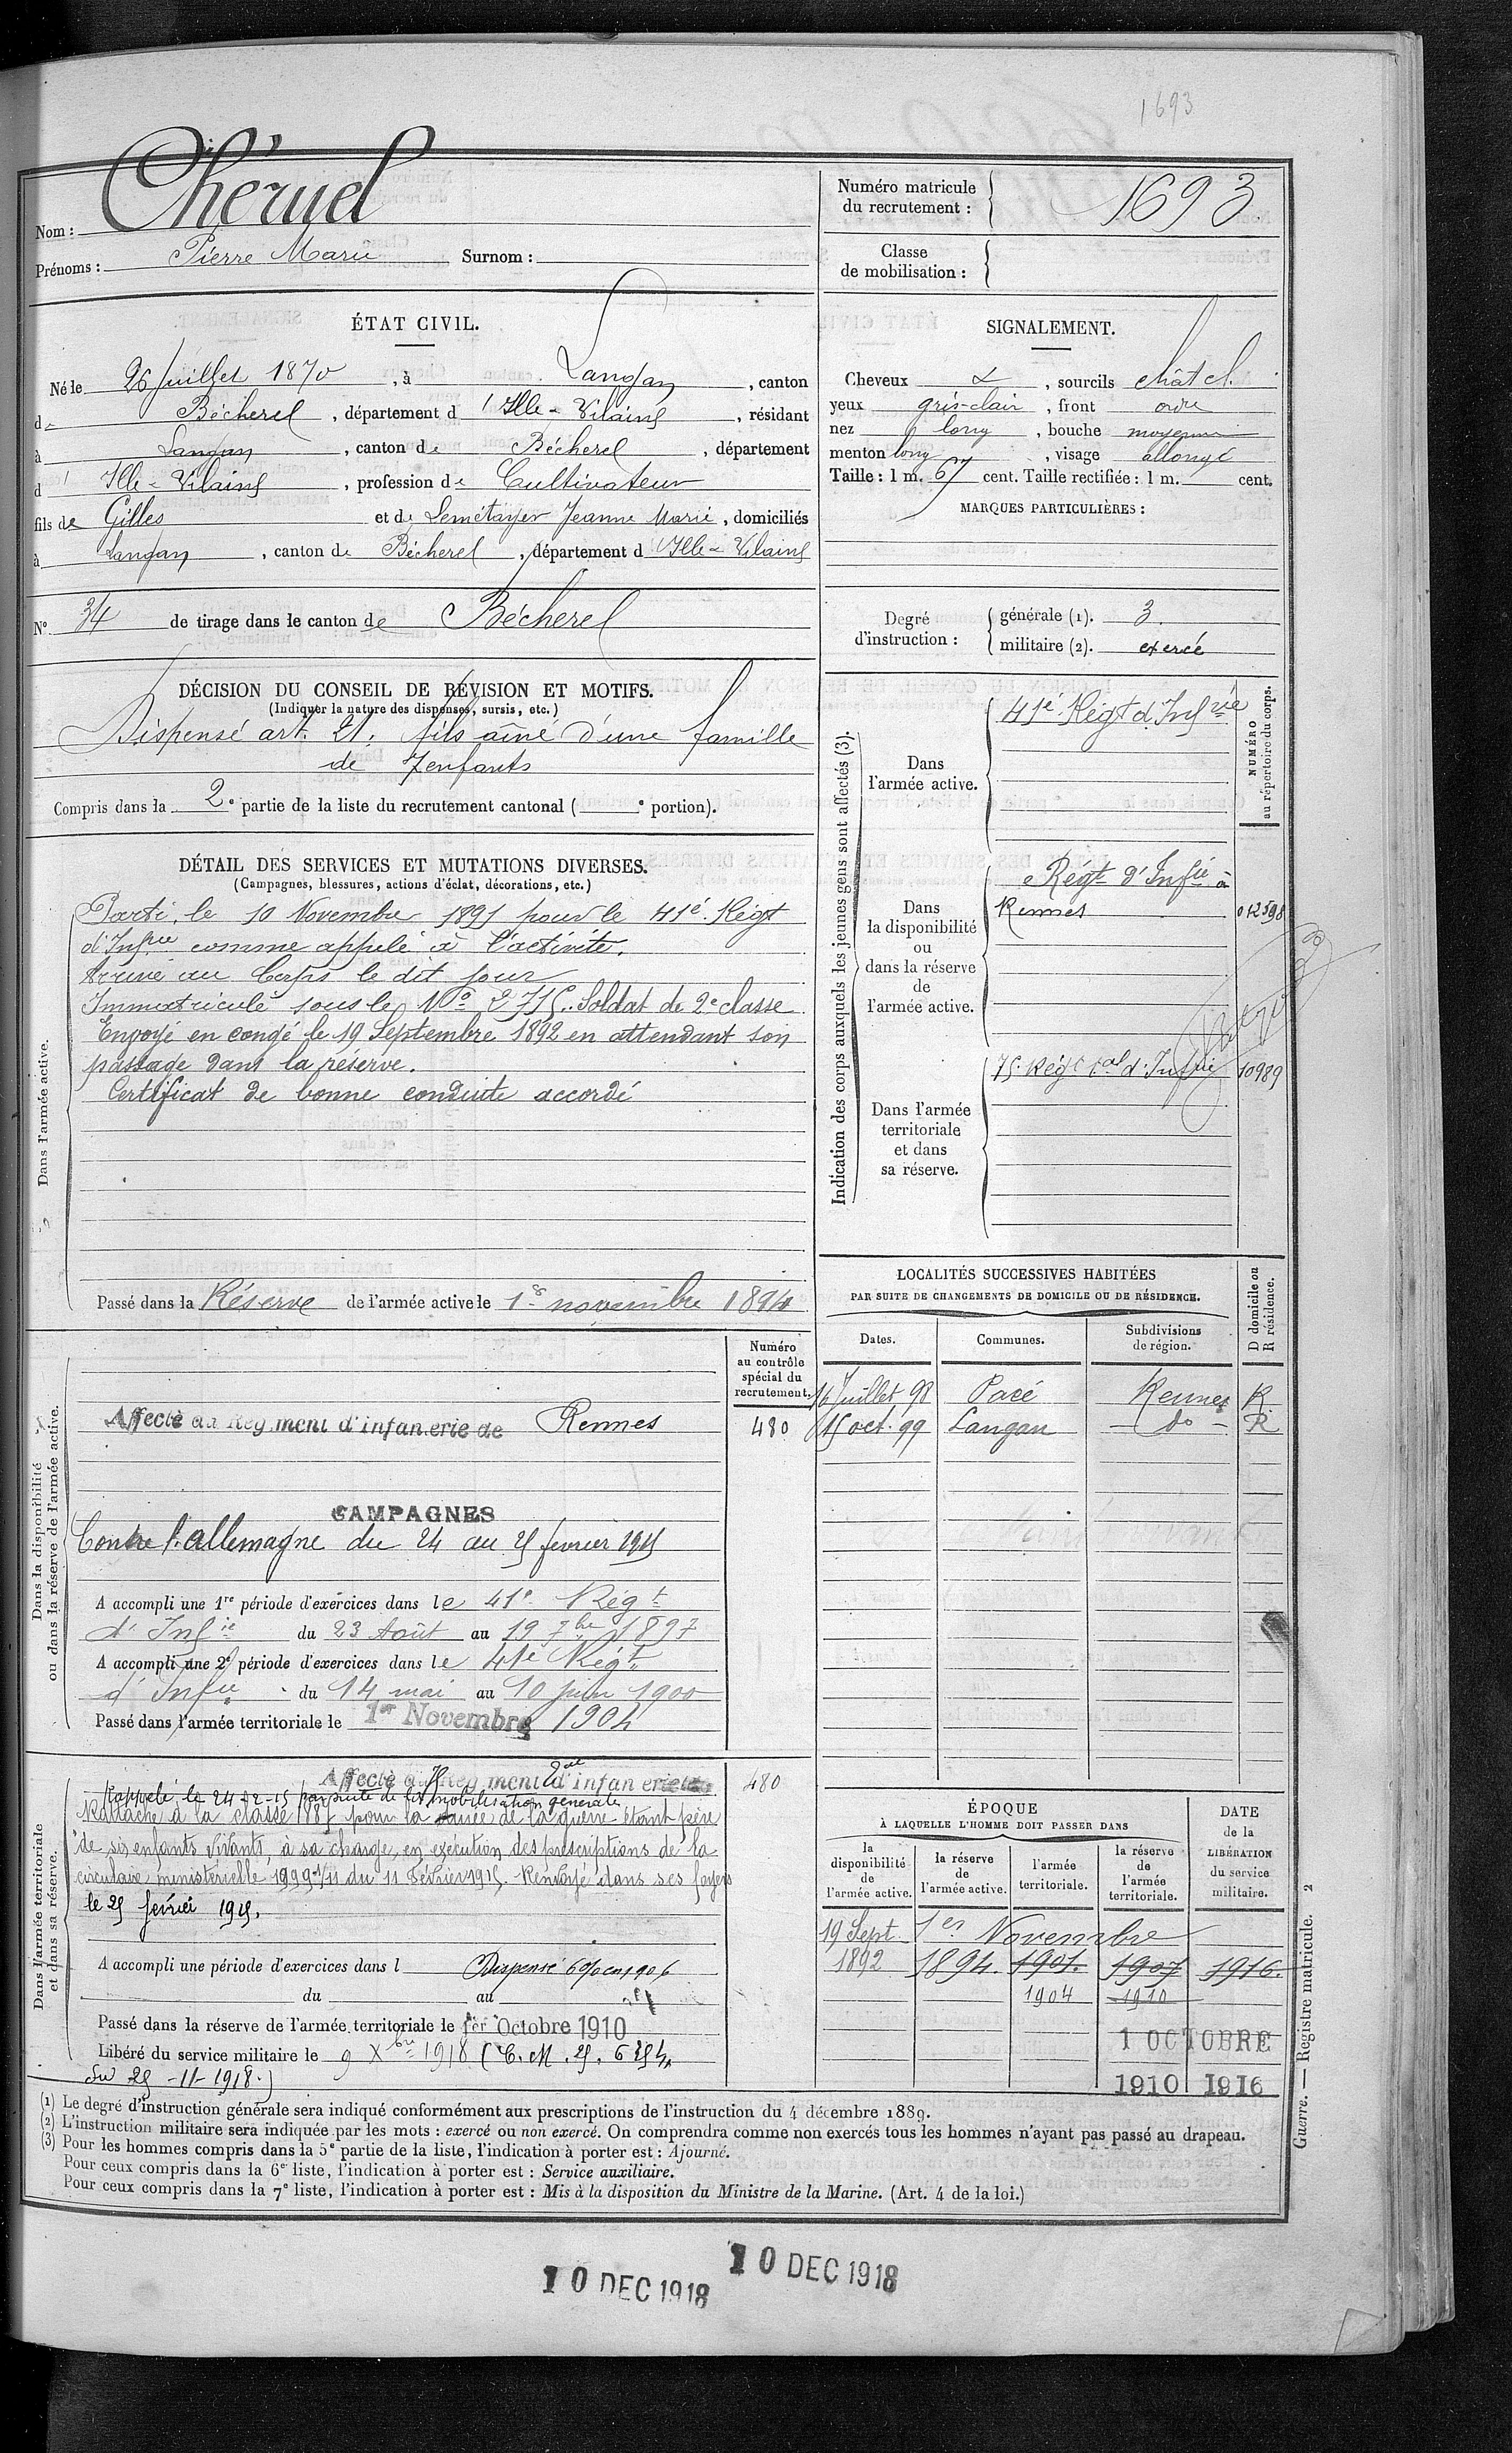 1693
Nom : Chéruel
Prénoms : Pierre Marie Surnom :
Numéro matricule
du recrutement : 1693
Classe
de mobilisation :
ÉTAT CIVIL.
Né le 26 Juillet 1870, à Langan, canton
de Bécherel, département d'Ille-&-Vilaine, résidant
à Langan, canton de Bécherel, département
d'Ille-&-Vilaine, profession de Cultivateur
fils de Gilles et de Lemétayer Jeanne Marie, domiciliés
à Langan, canton de Bécherel, département d'Ille-&-Vilaine
N° 34 de tirage dans le canton de Bécherel
SIGNALEMENT.
Cheveux &, sourcils chât cl.
yeux gris-clair, front ordre
nez long, bouche moyenne
menton long, visage allongé
Taille : 1 m. 67 cent. Taille rectifiée : 1 m. cent.
MARQUES PARTICULIÈRES :
Degré
d'instruction :
générale (1). 3.
militaire (2). exercé
DÉCISION DU CONSEIL DE RÉVISION ET MOTIFS.
(Indiquer la nature des dispenses, sursis, etc.)
Dispensé art. 21. fils aîné d'une famille
de 7 enfants
Compris dans la 2e partie de la liste du recrutement cantonal ( e portion).
DÉTAIL DES SERVICES ET MUTATIONS DIVERSES.
(Campagnes, blessures, actions d'éclat, décorations, etc.)
Dans l'armée active.
Parti, le 10 Novembre 1891 pour le 41e Régt
d'Infrie comme appelé à l'activité.
Arrivé au Corps le dit jour
Immatriculé sous le No 2715. Soldat de 2e classe
Envoyé en congé le 19 Septembre 1892 en attendant son
passage dans la réserve.
Certificat de bonne conduite accordé
Passé dans la Réserve de l'armée active le 1er novembre 1894
Indication des corps auxquels les jeunes gens sont affectés (3).
NUMÉRO
au répertoire du corps.
Dans
l'armée active.
41e Régt d'Infrie
Dans
la disponibilité
ou
dans la réserve
de
l'armée active.
Régt d'Infie à
Rennes
012598
Dans l'armée
territoriale
et dans
sa réserve.
75e Régt tal d'Infrie 10989
Dans la disponibilité
ou dans la réserve de l'armée active.
Numéro
au contrôle
spécial du
recrutement.
Affecté au Régiment d'infanterie de Rennes 480
CAMPAGNES
Contre l'allemagne du 24 au 25 février 1915
A accompli une 1re période d'exercices dans le 41e Régt
d'Infie du 23 Août au 19 7bre 1897
A accompli une 2e période d'exercices dans le 41e Régt
d'Infie du 14 mai au 10 juin 1900
Passé dans l'armée territoriale le 1er Novembre 1904
LOCALITÉS SUCCESSIVES HABITÉES
PAR SUITE DE CHANGEMENTS DE DOMICILE OU DE RÉSIDENCE.
D domicile ou
R résidence.
Dates. Communes. Subdivisions
de région.
16 Juillet 98 Pacé Rennes R
15 oct. 99 Langan - do - R
Dans l'armée territoriale
et dans sa réserve.
Affecté au 75 Régiment tal d'infanterie 480
Rappelé le 24-2-15 par suite de la mobilisation générale
Rattaché à la classe 1887 pour la durée de la guerre étant père
de six enfants vivants, à sa charge, en exécution des prescriptions de la
circulaire ministérielle 1999 1/11 du 11 Février 1915. Renvoyé dans ses foyers
le 25 février 1915.
A accompli une période d'exercices dans l Dispensé
du au
Passé dans la réserve de l'armée territoriale le 1er Octobre 1910
Libéré du service militaire le 9 Xbre 1918 (C. M. 25. 6254.
du 25-11-1918.)
ÉPOQUE
À LAQUELLE L'HOMME DOIT PASSER DANS
la
disponibilité
de
l'armée active.
la réserve
de
l'armée active.
l'armée
territoriale.
la réserve
de
l'armée
territoriale.
DATE
de la
LIBÉRATION
du service
militaire.
19 Sept 1er Novembre
1892 1894. 1901. 1907 1916.
1904 1910
1 OCTOBRE
1910 1916
Guerre. — Registre matricule. 2
(1) Le degré d'instruction générale sera indiqué conformément aux prescriptions de l'instruction du 4 décembre 1889.
(2) L'instruction militaire sera indiquée par les mots : exercé ou non exercé. On comprendra comme non exercés tous les hommes n'ayant pas passé au drapeau.
(3) Pour les hommes compris dans la 5e partie de la liste, l'indication à porter est : Ajourné.
Pour ceux compris dans la 6e liste, l'indication à porter est : Service auxiliaire.
Pour ceux compris dans la 7e liste, l'indication à porter est : Mis à la disposition du Ministre de la Marine. (Art. 4 de la loi.)
10 DEC 1918
10 DEC 1918